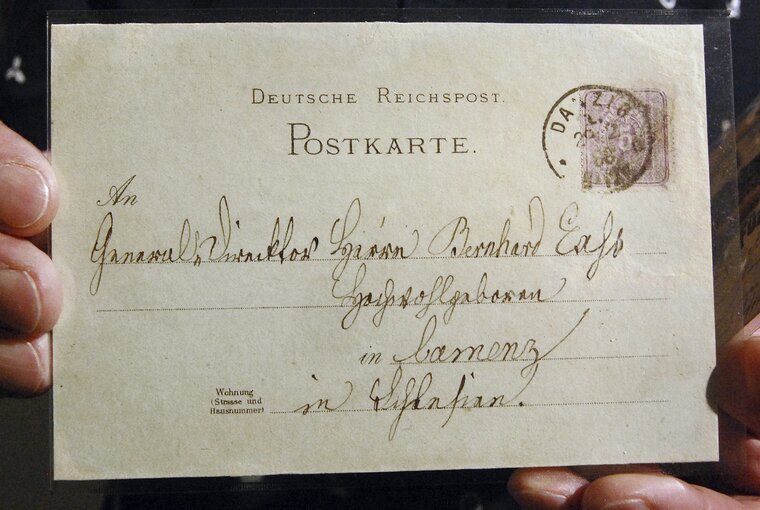 DEUTSCHE REICHSPOST.
POSTKARTE.
DANZIG
5
An
General-Direktor Herrn Bernhard
Hochwohlgeboren
in Camenz
Wohnung
(Strasse und
Hausnummer)
in Schlesien.